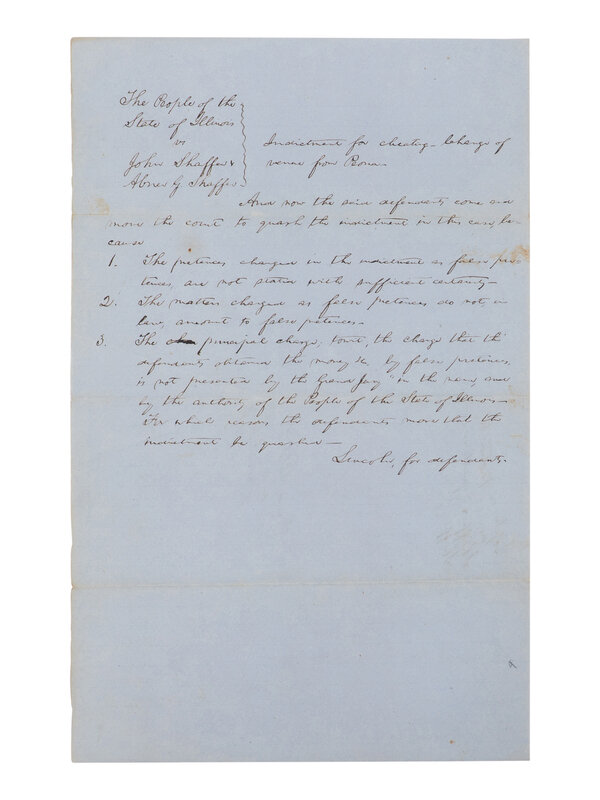 The People of the
State of Illinois
vs
John Shaffer &
Abner G Shaffer
Indictment for cheating - Change of
venue from Peoria -
And now the said defendants come and
move the court to quash the indictment in this case, be-
cause
1. The pretences charged in the indictment as false pre-
tences, are not stated with sufficient certainty -
2. The matters charged as false pretences do not, in
law, amount to false pretences -
3. The principal charge, towit, the charge that the
defendants obtained the money &c by false pretences,
is not presented by the Grand Jury "in the name and
by the authority of the People of the State of Illinois -
For which reasons the defendants move that the
indictment be quashed -
Lincoln, for defendants -